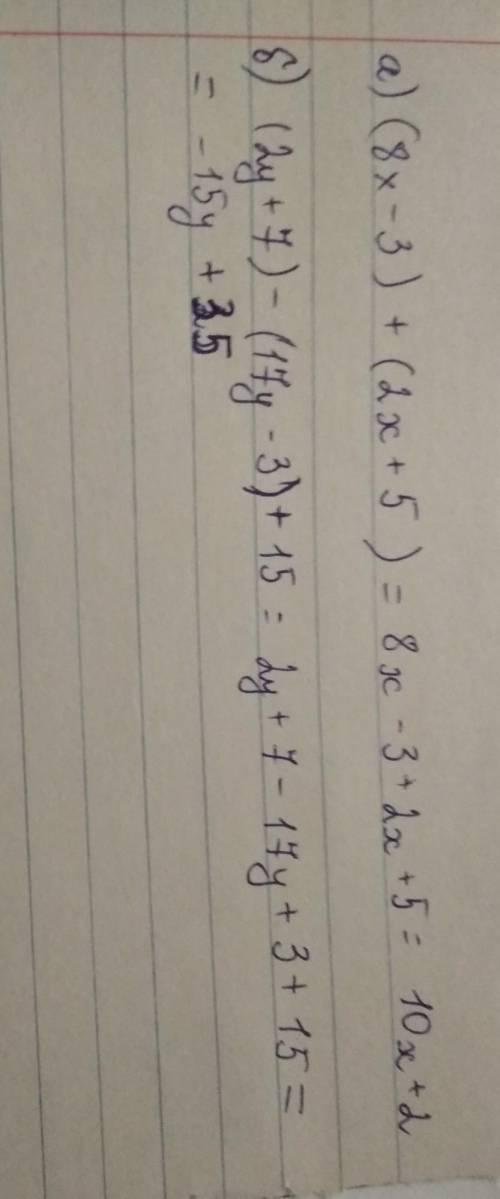 а) (8x - 3) + (2x + 5) = 8x - 3 + 2x + 5 = 10x + 2
б) (2y + 7) - (17y - 3) + 15 = 2y + 7 - 17y + 3 + 15 =
= -15y + 25